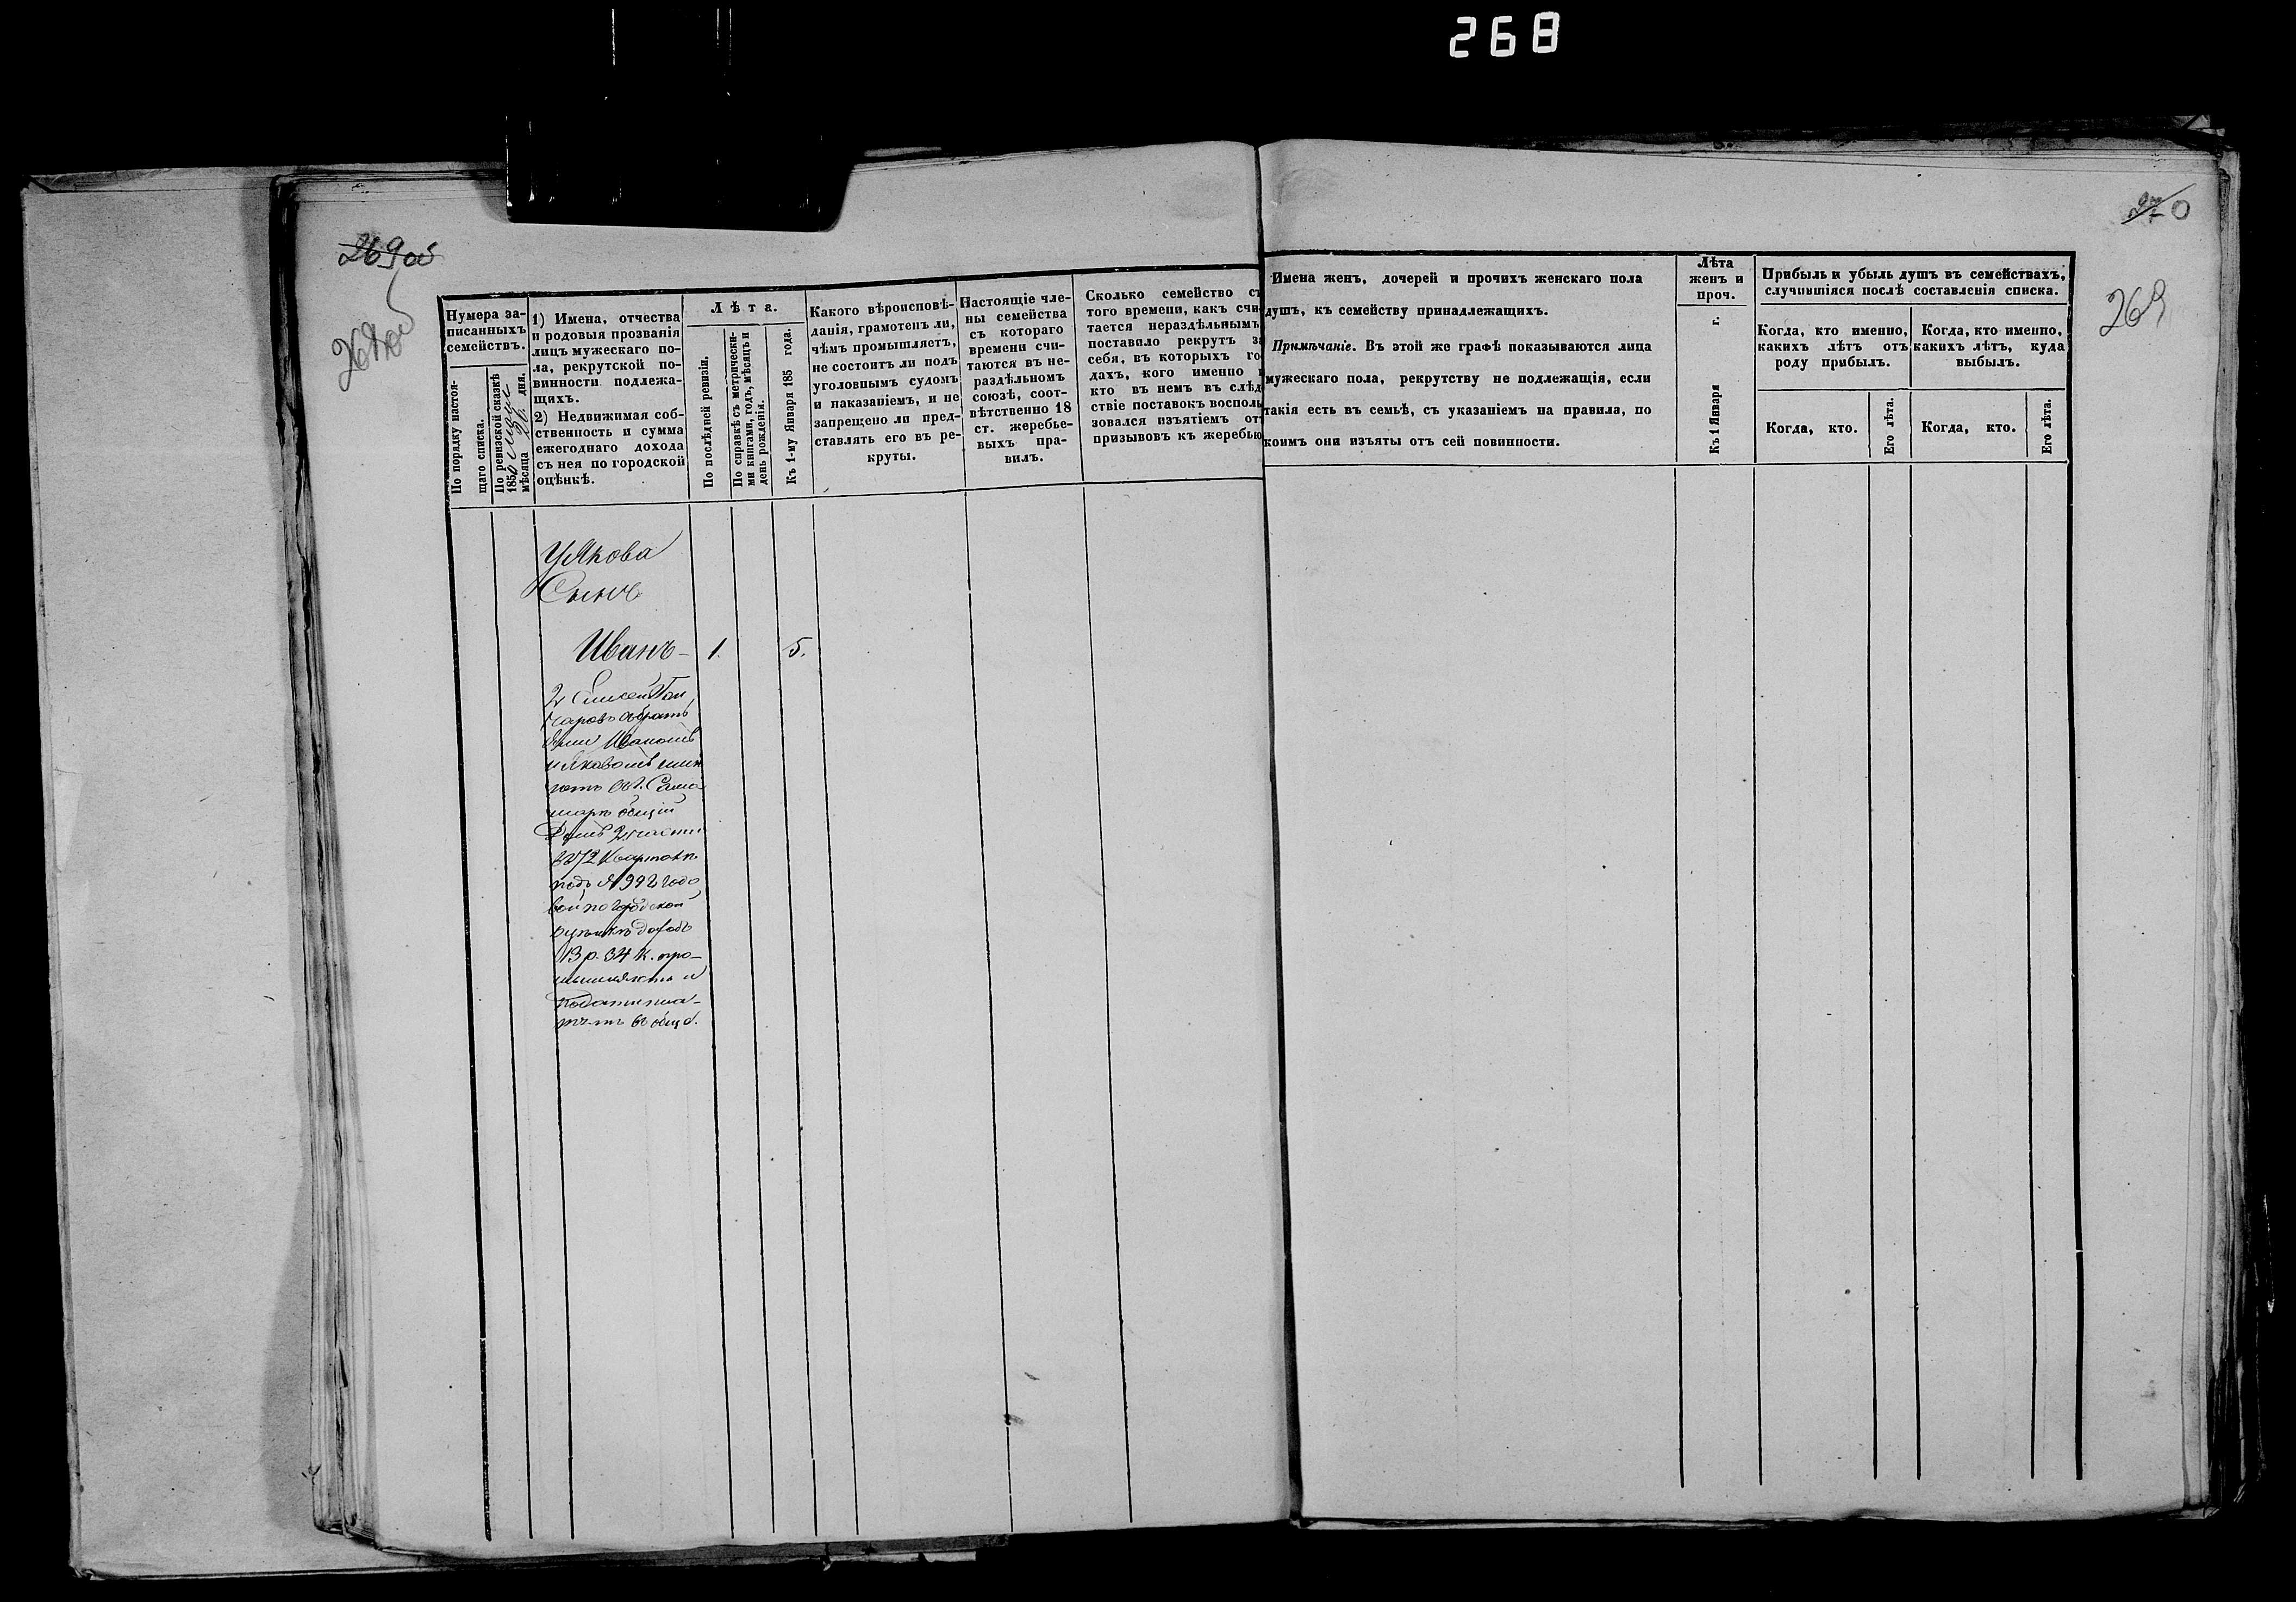 268
269 об
269 об
Нумера за-
писанныхъ
семействъ.
По порядку настоя-
щаго списка.
По ревизской сказкѣ
185
мѣсяца дня.
1) Имена, отчества
и родовыя прозванія
лицъ мужескаго по-
ла, рекрутской по-
винности подлежа-
щихъ.
2) Недвижимая соб-
ственность и сумма
ежегоднаго дохода
съ нея по городской
оцѣнкѣ.
Лѣта.
По послѣдней ревизіи.
По справкѣ съ метрически-
ми книгами, годъ, мѣсяцъ и
день рожденія.
Къ 1-му Января 185 года.
Какого вѣроисповѣ-
данія, грамотенъ ли,
чѣмъ промышляетъ,
не состоитъ ли подъ
уголовнымъ судомъ
и наказаніемъ, и не
запрещено ли пред-
ставлять его въ ре-
круты.
Настоящіе чле-
ны семейства
съ котораго
времени счи-
таются въ не-
раздѣльномъ
союзѣ, соот-
вѣтственно 18
ст. жеребье-
выхъ пра-
вилъ.
Сколько семейство съ
того времени, какъ счи-
тается нераздѣльнымъ
поставило рекрутъ за
себя, въ которыхъ го-
дахъ, кого именно и
кто въ немъ въ слѣд-
ствіе поставокъ восполь-
зовался изъятіемъ отъ
призывовъ къ жеребью
У Якова
Сынъ
Иванъ - 1. 5.
съ братъ
Ивономъ
общій
Домъ 2 части
въ 72 Квартал
подъ № 992 годо
вой по городской
оцѣнкѣ доходъ
13 р. 34 к. про-
мышляютъ и
подати пла-
тятъ въ общ
270
269
Имена женъ, дочерей и прочихъ женскаго пола
душъ, къ семейству принадлежащихъ.
Примѣчаніе. Въ этой же графѣ показываются лица
мужескаго пола, рекрутству не подлежащія, если
такія есть въ семьѣ, съ указаніемъ на правила, по
коимъ они изъяты отъ сей повинности.
Лѣта
женъ и
проч.
Къ 1 Января г.
Прибыль и убыль душъ въ семействахъ,
случившіяся послѣ составленія списка.
Когда, кто именно,
какихъ лѣтъ отъ
роду прибылъ.
Когда, кто именно,
какихъ лѣтъ, куда
выбылъ.
Когда, кто.
Его лѣта.
Когда, кто.
Его лѣта.